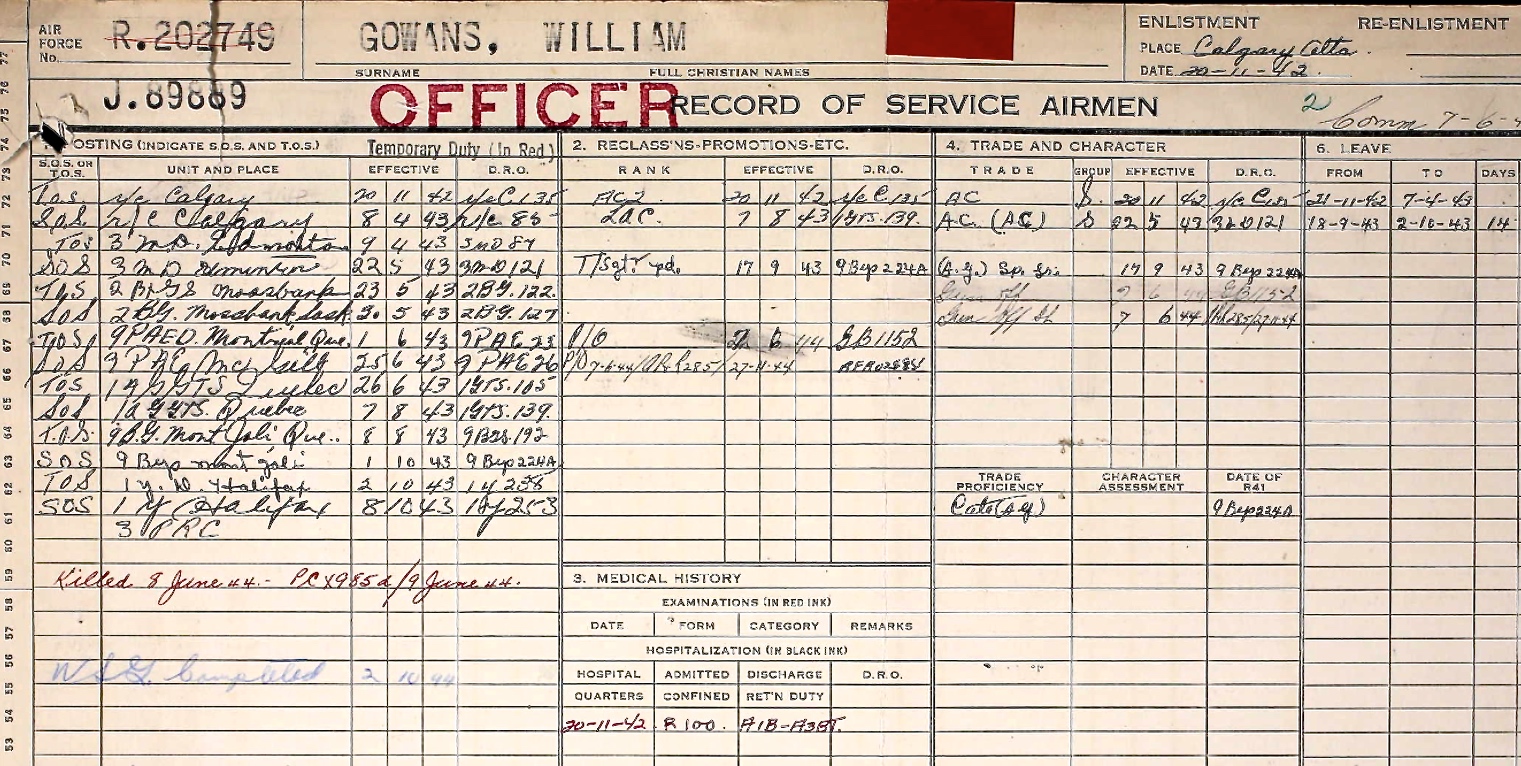 AIR FORCE No. R.202749 GOWANS, WILLIAM
SURNAME FULL CHRISTIAN NAMES
ENLISTMENT RE-ENLISTMENT
PLACE Calgary Alta.
DATE 20-11-42.
J.89889 OFFICER RECORD OF SERVICE AIRMEN 2 Comm 7-6-
POSTING (INDICATE S.O.S. AND T.O.S.) Temporary Duty (In Red)
S.O.S. OR T.O.S. UNIT AND PLACE EFFECTIVE D.R.O.
T.O.S. Calgary 20 11 42 135
S.O.S. r/c Calgary 8 4 43 r/c 85
TOS 3 M.D. Edmonton 9 4 43 3MD 87
SOS 3 MD Edmonton 22 5 43 3MD 121
TOS 2 B+GS Mossbank 23 5 43 2BG.122.
SOS 2 BG. Mossbank Sask 30 5 43 2BG.127
TOS 9 PAED. Montreal Que. 1 6 43 9PAE 23
SOS 9 PAE McGill 25 6 43 9 PAE 26
TOS Quebec 26 6 43 1GTS.105
SOS 1A GGTS. Quebec 7 8 43 1GTS.139.
T.O.S. 9 B.G. Mont Joli Que.. 8 8 43 192
SOS 9 mont joli 1 10 43 224A
TOS 1 Y.D. Halifax 2 10 43 1Y
SOS 1 Y Halifax 8 10 43 1Hy253
3 PRC
Killed 8 June 44.- PC X985 d/9 June 44.
W.S.G. Completed 2 10 44
2. RECLASS'NS-PROMOTIONS-ETC.
RANK EFFECTIVE D.R.O.
AC2 20 11 42 135
LAC. 7 8 43 1GTS.139.
T/Sgt. pd. 17 9 43 224A
P/O 6 44 GB1152
P/O 7-6-44 27-11-44
3. MEDICAL HISTORY
EXAMINATIONS (IN RED INK)
DATE FORM CATEGORY REMARKS
HOSPITALIZATION (IN BLACK INK)
HOSPITAL ADMITTED DISCHARGE D.R.O.
QUARTERS CONFINED RET'N DUTY
20-11-42 R100. A1B-A3BT.
4. TRADE AND CHARACTER
TRADE GROUP EFFECTIVE D.R.O.
AC S. 20 11 42
A.C. (A.G.) S 22 5 43 3MD121
(A.G.) Sp. Grp. 17 9 43 224A
7 6 44 GB1152
7 6 44
TRADE PROFICIENCY CHARACTER ASSESSMENT DATE OF R41
224A
6. LEAVE
FROM TO DAYS
21-11-42 7-4-43
18-9-43 2-10-43 14
77
76
75
74
73
72
71
70
69
68
67
66
65
64
63
62
61
60
59
58
57
56
55
54
53